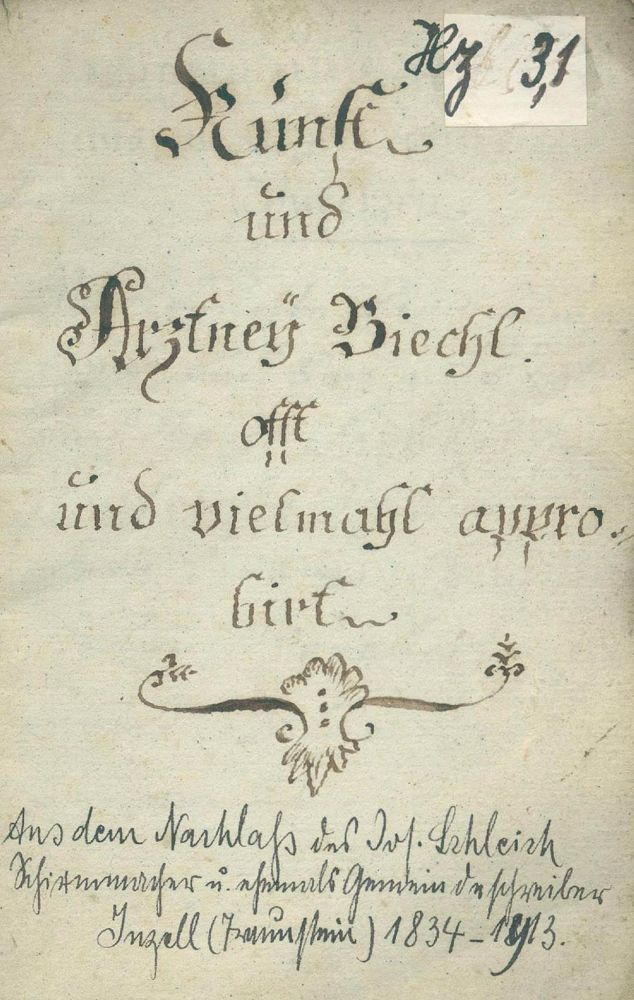 Hz 3,1
Künst
und
Arztneÿ Biechl.
offt
und vielmahl appro.
birt
Aus dem Nachlaß des Jos. Schleich
Schirmmacher u. ehemals Gemeindeschreiber
Inzell (Traunstein) 1834 - 1913.